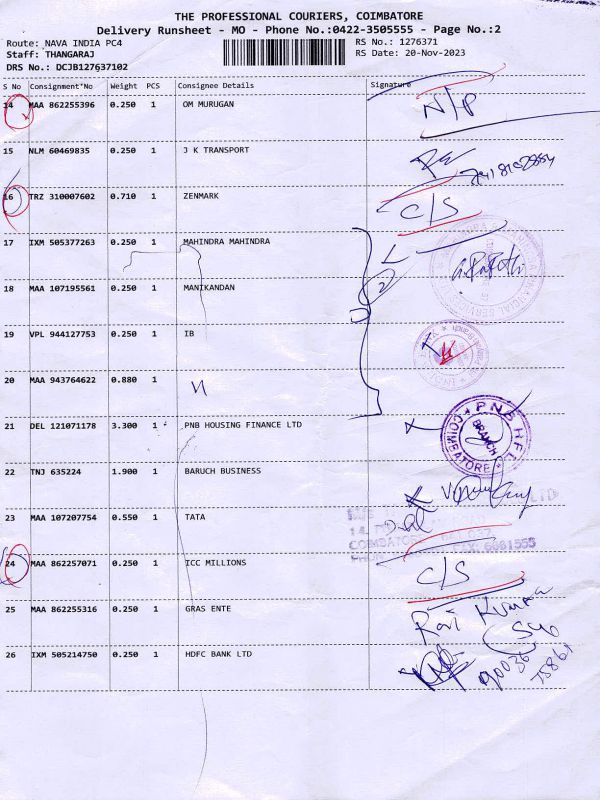 THE PROFESSIONAL COURIERS, COIMBATORE
Delivery Runsheet - MO - Phone No.:0422-3505555 - Page No.:2
Route: NAVA INDIA PC4 RS No.: 1276371
Staff: THANGARAJ RS Date: 20-Nov-2023
DRS No.: DCJB127637102
S No Consignment*No Weight PCS Consignee Details Signature
14 MAA 862255396 0.250 1 OM MURUGAN N/P
15 NLM 60469835 0.250 1 J K TRANSPORT
16 TRZ 310007602 0.710 1 ZENMARK C/S
17 IXM 505377263 0.250 1 MAHINDRA MAHINDRA
18 MAA 107195561 0.250 1 MANIKANDAN
19 VPL 944127753 0.250 1 IB
20 MAA 943764622 0.880 1
21 DEL 121071178 3.300 1 PNB HOUSING FINANCE LTD
PNB HFL
BRANCH
COIMBATORE
22 TNJ 635224 1.900 1 BARUCH BUSINESS
23 MAA 107207754 0.550 1 TATA
24 MAA 862257071 0.250 1 ICC MILLIONS C/S
25 MAA 862255316 0.250 1 GRAS ENTE Ravi Kumar
26 IXM 505214750 0.250 1 HDFC BANK LTD